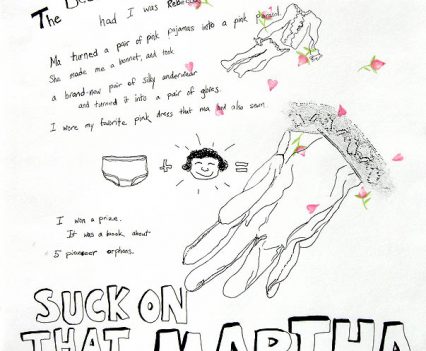 The
had I was Rebecca
Ma turned a pair of pink pajamas into a pink parasol.
She made me a bonnet, and took
a brand-new pair of silky underwear
and turned it into a pair of gloves.
I wore my favorite pink dress that ma had also sewn.
+ =
I won a prize.
It was a book about
5 pioneer orphans.
SUCK ON
THAT, MARTHA